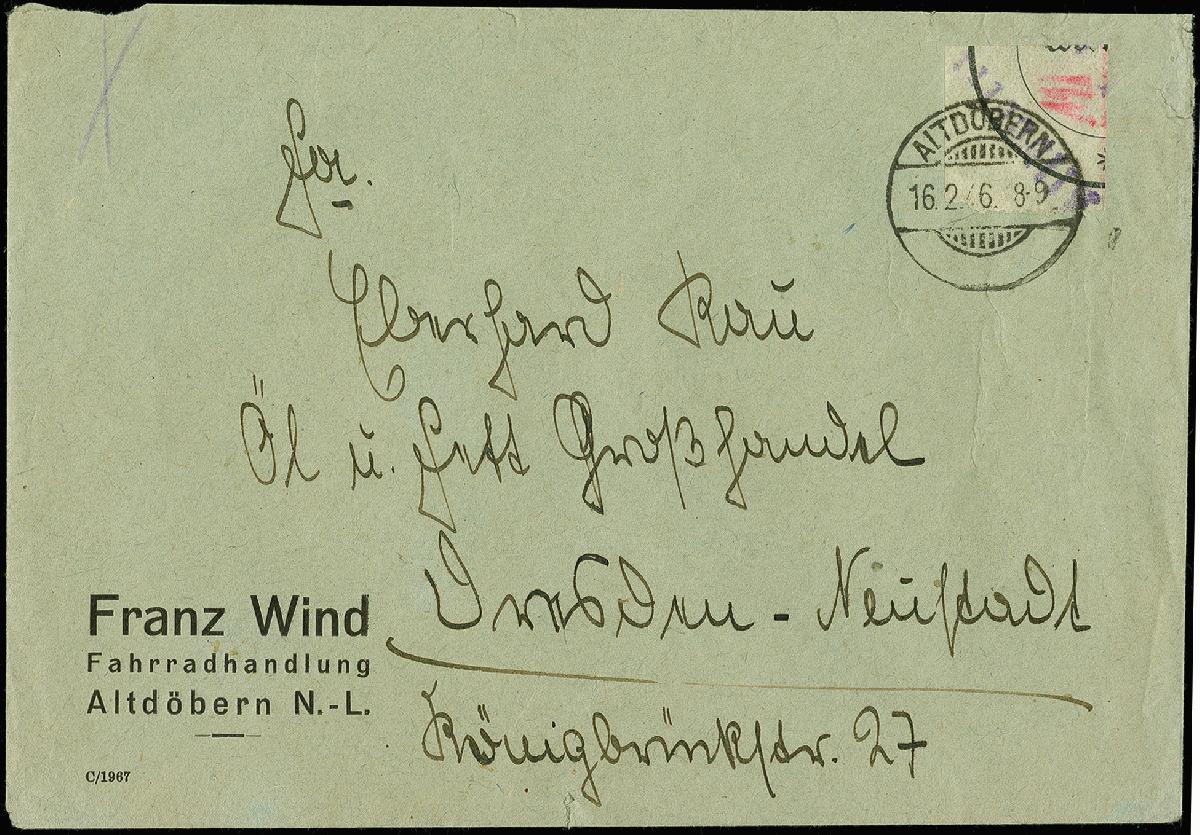 ALTDÖBERN
16.2.46. 8-9
Fa.
Eberhard Rau
Öl u. Fett Großhandel
Dresden - Neustadt
Königbrückstr. 27
Franz Wind
Fahrradhandlung
Altdöbern N.-L.
C/1967